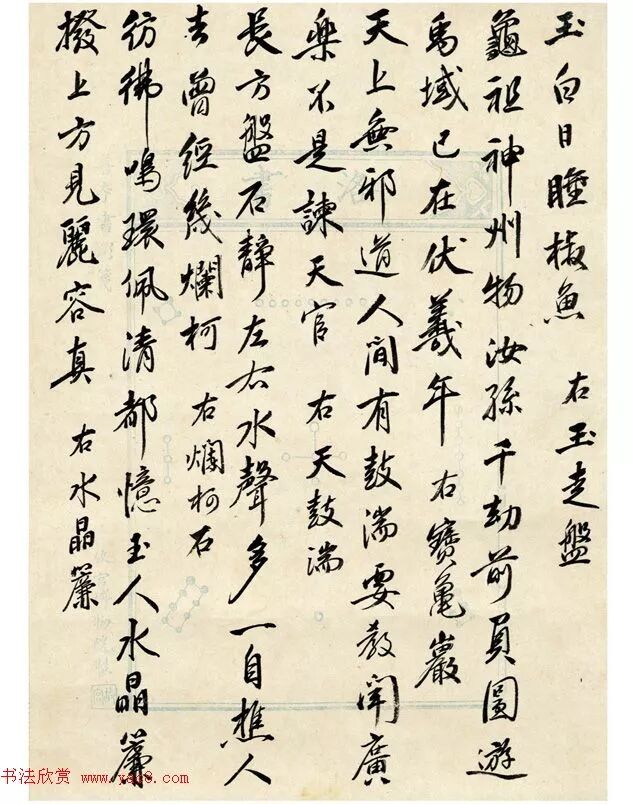 玉白日睡椒魚　右玉走盤
龜祖神州物汝孫千劫前負圖遊
馬域已在伏羲年　右寶龜巖
天上無邪道人間有鼓湍要教聞廣
樂不是諫天官　右天鼓湍
長方盤石靜左右水聲多一自樵人
去曾經幾爛柯　右爛柯石
彷彿鳴環佩清都憶玉人水晶簾
撥上方見麗容真　右水晶簾
洛書
故宮博物院製
书法欣赏 www.yac8.com